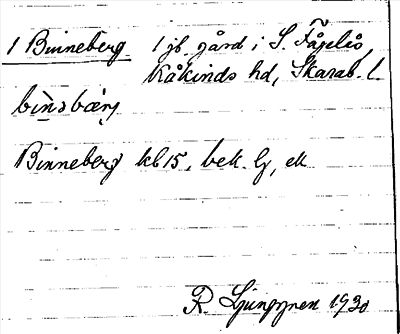 1 Binneberg 1 jb. gård i S. Fågelås,
Kåkinds hd, Skarab. l
binsbærj
Binneberg kb 15, bek. lj, ek
R. Ljunggren 1930